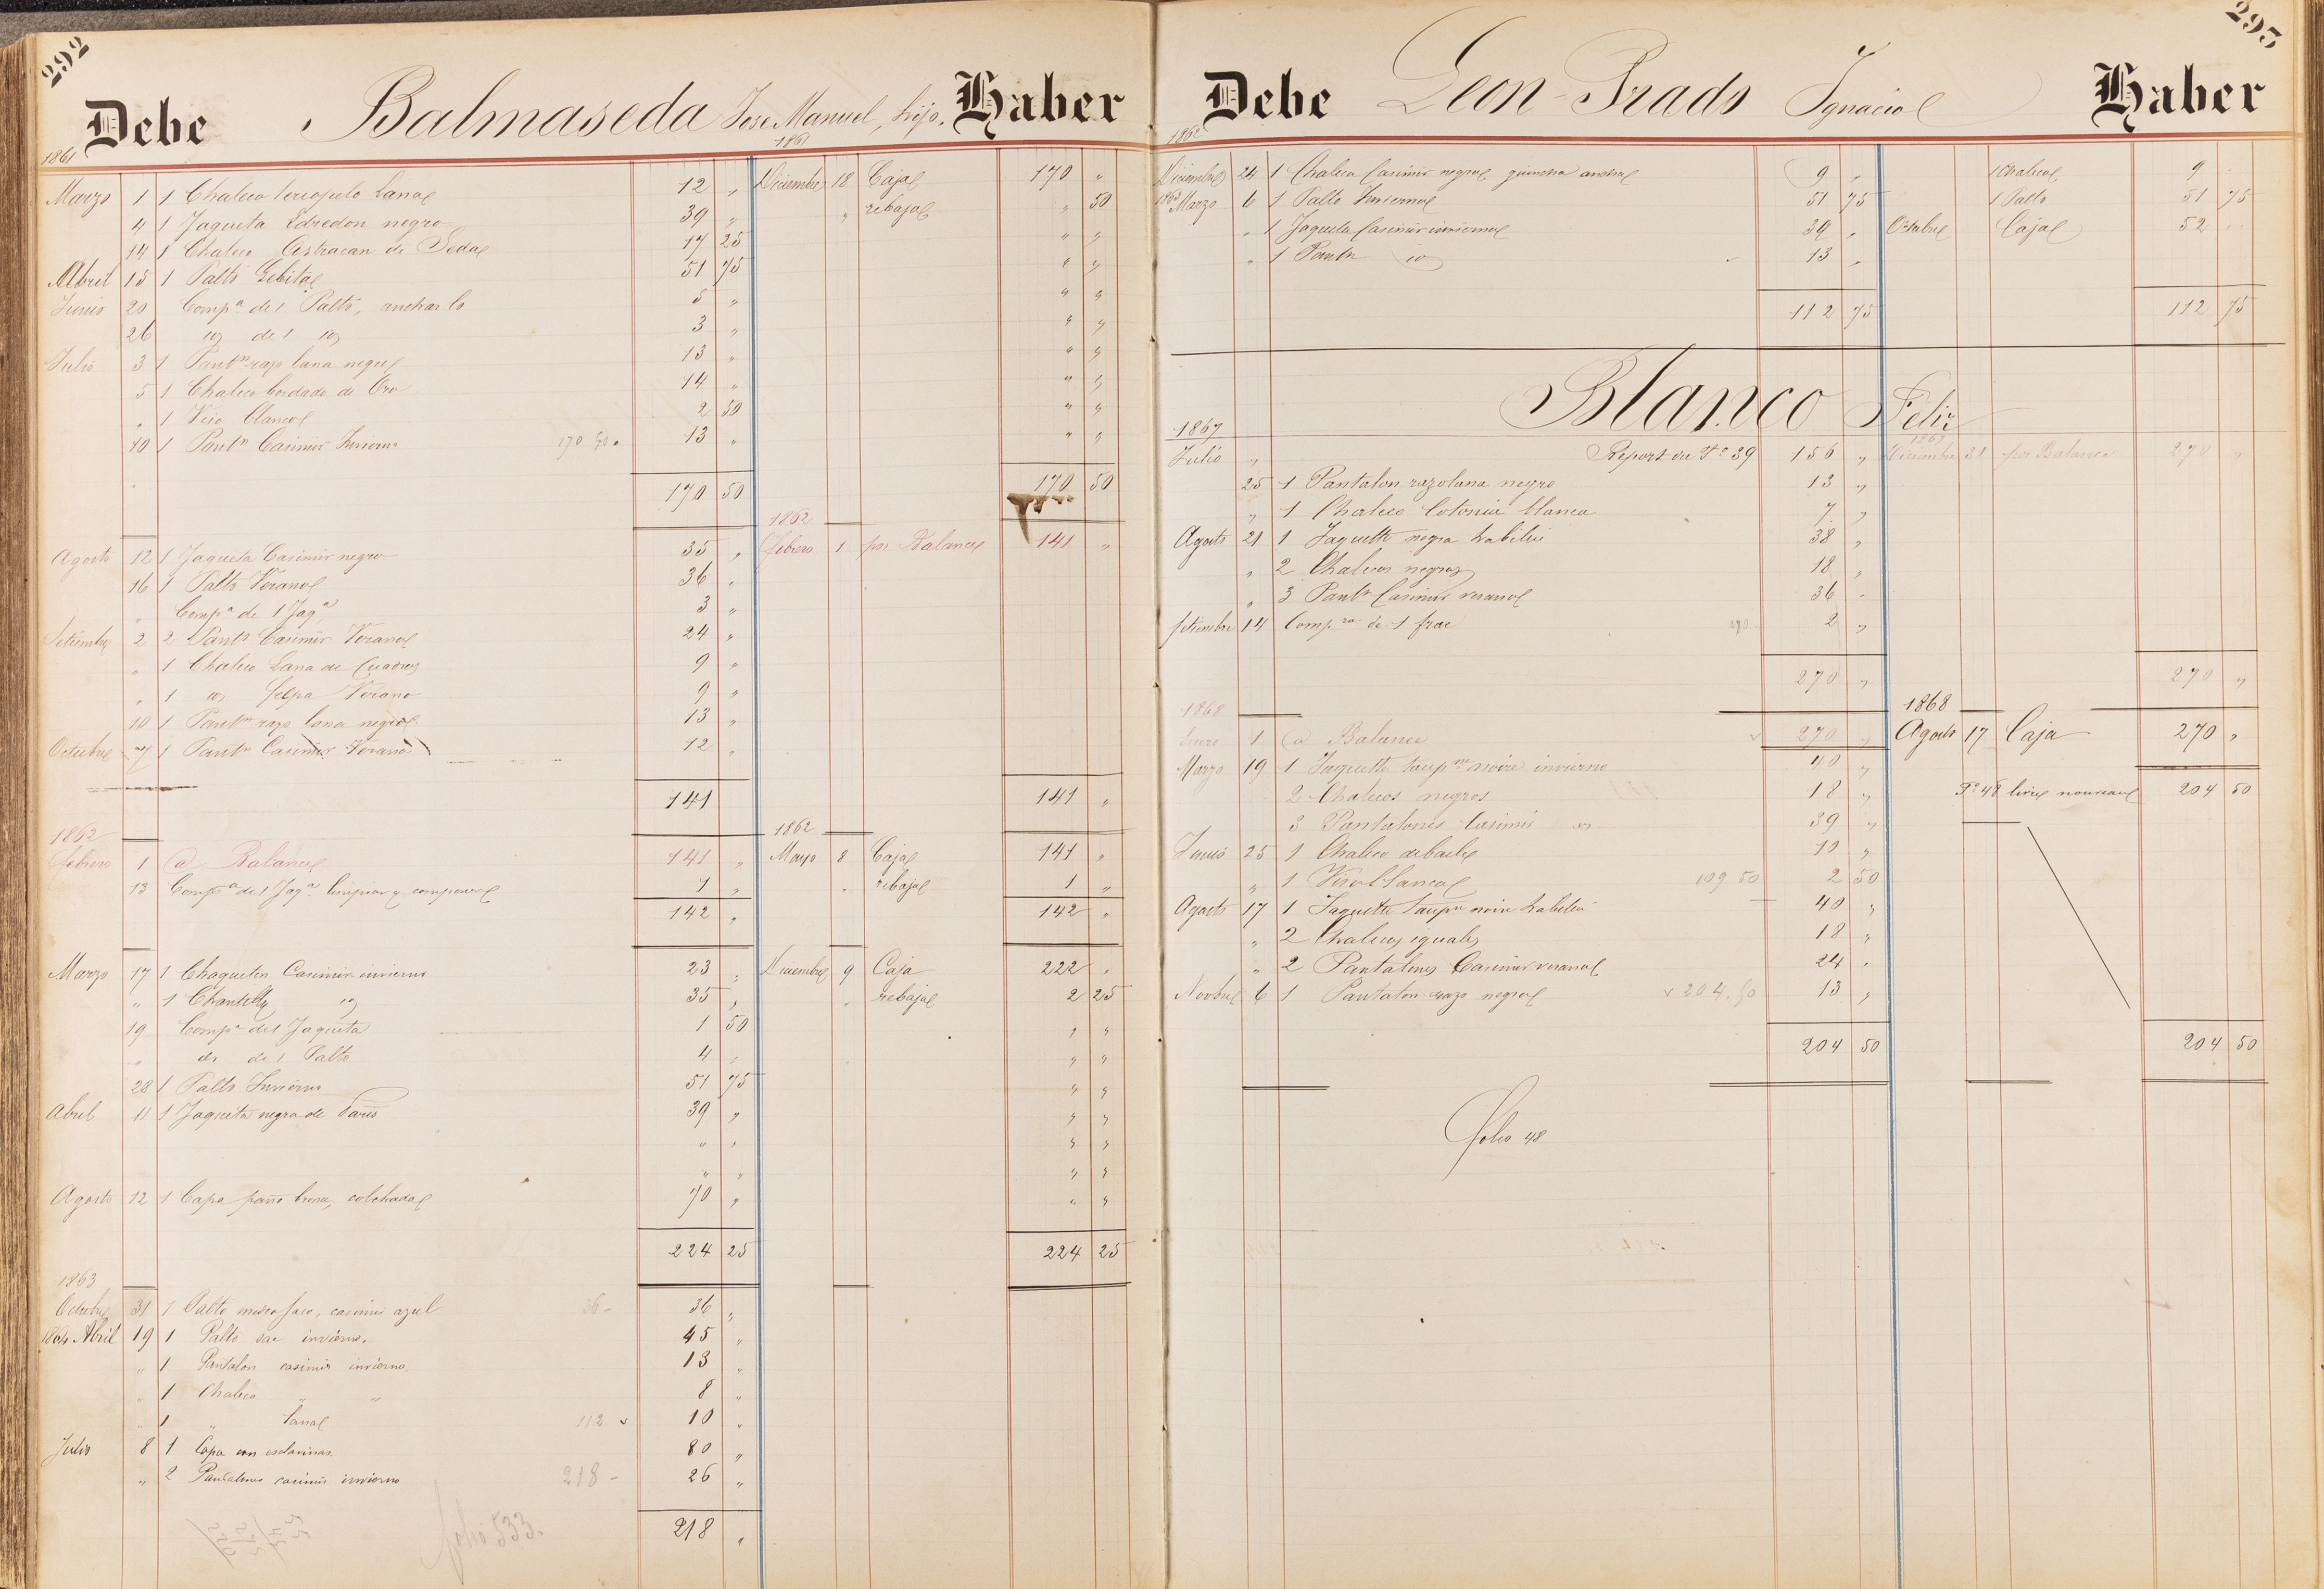 292
Debe Balmaseda Jose Manuel, hijo. Haber
1861 1861
Marzo 1 1 Chaleco terciopelo Lana 12 " Diciembre 18 Caja 170 "
4 1 Jaqueta Edredon negro 39 " " rebaja " 50
14 1 Chaleco Astracan de Seda 17 25 " "
Abril 15 1 Palto 51 75 " "
Junio 20 Comp.a de 1 Palto, ancharlo 5 " " "
26 id de 1 id 3 " " "
Julio 3 1 Pantn razo lana negro 13 " " "
5 1 Chaleco bordado de Oro 14 " " "
" 1 Viso blanco 2 50 " "
10 1 Pantn Casimir Invierno 170 50 13 " " "
170 50 170 50
1862
Agosto 12 1 Jaqueta Casimir negro 35 " febrero 1 por Balance 141 "
16 1 Palto Verano 36 "
" Comp.a de 1 Jaq.a 3 "
Setiembre 2 2 Pantn Casimir Verano 24 "
" 1 Chaleco Lana de Cuadros 9 "
" 1 id felpa Verano 9 "
10 1 Pantn razo lana negro 13 "
Octubre 7 1 Pantn Casimir Verano 12 "
141 141 "
1862 1862
febrero 1 a Balance 141 " Mayo 8 Caja 141 "
13 Comp.a de 1 Jaq.a limpiar y componer 1 " " rebaja 1 "
142 " 142 "
Marzo 17 1 Chaquetin Casimir invierno 23 " Diciembre 9 Caja 222 "
" 1 Chantilly id 35 " " rebaja 2 25
19 Comp.a de 1 Jaqueta 1 50 " "
" de 1 Palto 4 " " "
28 1 Palto Invierno 51 75 " "
Abril 11 1 Jaqueta negra de Paris 39 " " "
" " " "
" " " "
Agosto 12 1 Capa paño bronce, colchada 70 " " "
224 25 224 25
1863
Octubre 31 1 Palto medio saco, casimir azul 36 - 36 "
1864 Abril 19 1 Palto sac invierno. 45 "
" 1 Pantalon casimir invierno 13 "
" 1 Chaleco " " 8 "
" 1 " Lana 112 10 "
Julio 8 1 Capa con esclavinas 80 "
" 2 Pantalones casimir invierno 218 - 26 "
folio 533. 218 "
293
Debe Leon Prado Ignacio Haber
1862
Diciembre 24 1 Chaleco Casimir negro ancha 9 " 1 Chaleco 9 "
1863 Marzo 6 1 Palto Invierno 51 75 1 Palto 51 75
" 1 Jaqueta Casimir invierno 39 " Octubre Caja 52 "
" 1 Pantn id 13 "
112 75 112 75
Blanco Feliz
1867 1867
Julio " Report du Fo 39 156 " Diciembre 31 por Balance 270 "
25 1 Pantalon razo lana negro 13 "
" 1 Chaleco Cotonia blanca 7 "
Agosto 21 1 Jaquette negra habillée 38 "
" 2 Chalecos negros 18 "
" 3 Pantn Casimir verano 36 "
Setiembre 14 Comp.ra de 1 frac 270 2 "
270 " 270 "
1868 1868
Enero 1 a Balance 270 " Agosto 17 Caja 270 "
Marzo 19 1 Jaquette noire invierno 40 "
2 Chalecos negros 18 " Fo 48 livre nouveau 204 50
3 Pantalones Casimir id 39 "
Junio 25 1 Chaleco de baile 10 "
" 1 Viso blanco 109 50 2 50
Agosto 17 1 Jaquette noire habillée 40 "
" 2 Chalecos iguales 18 "
" 2 Pantalones Casimir verano 24 "
Novbre 6 1 Pantalon razo negro 204.50 13 "
204 50 204 50
folio 48